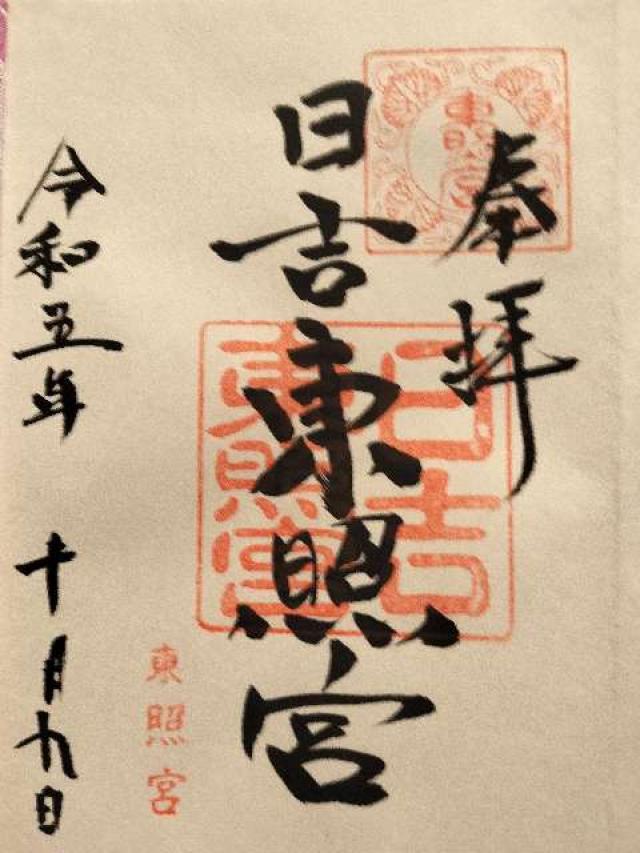 奉拝
東照宮
日吉東照宮
日吉
東照宮
東照宮
令和五年 十月九日